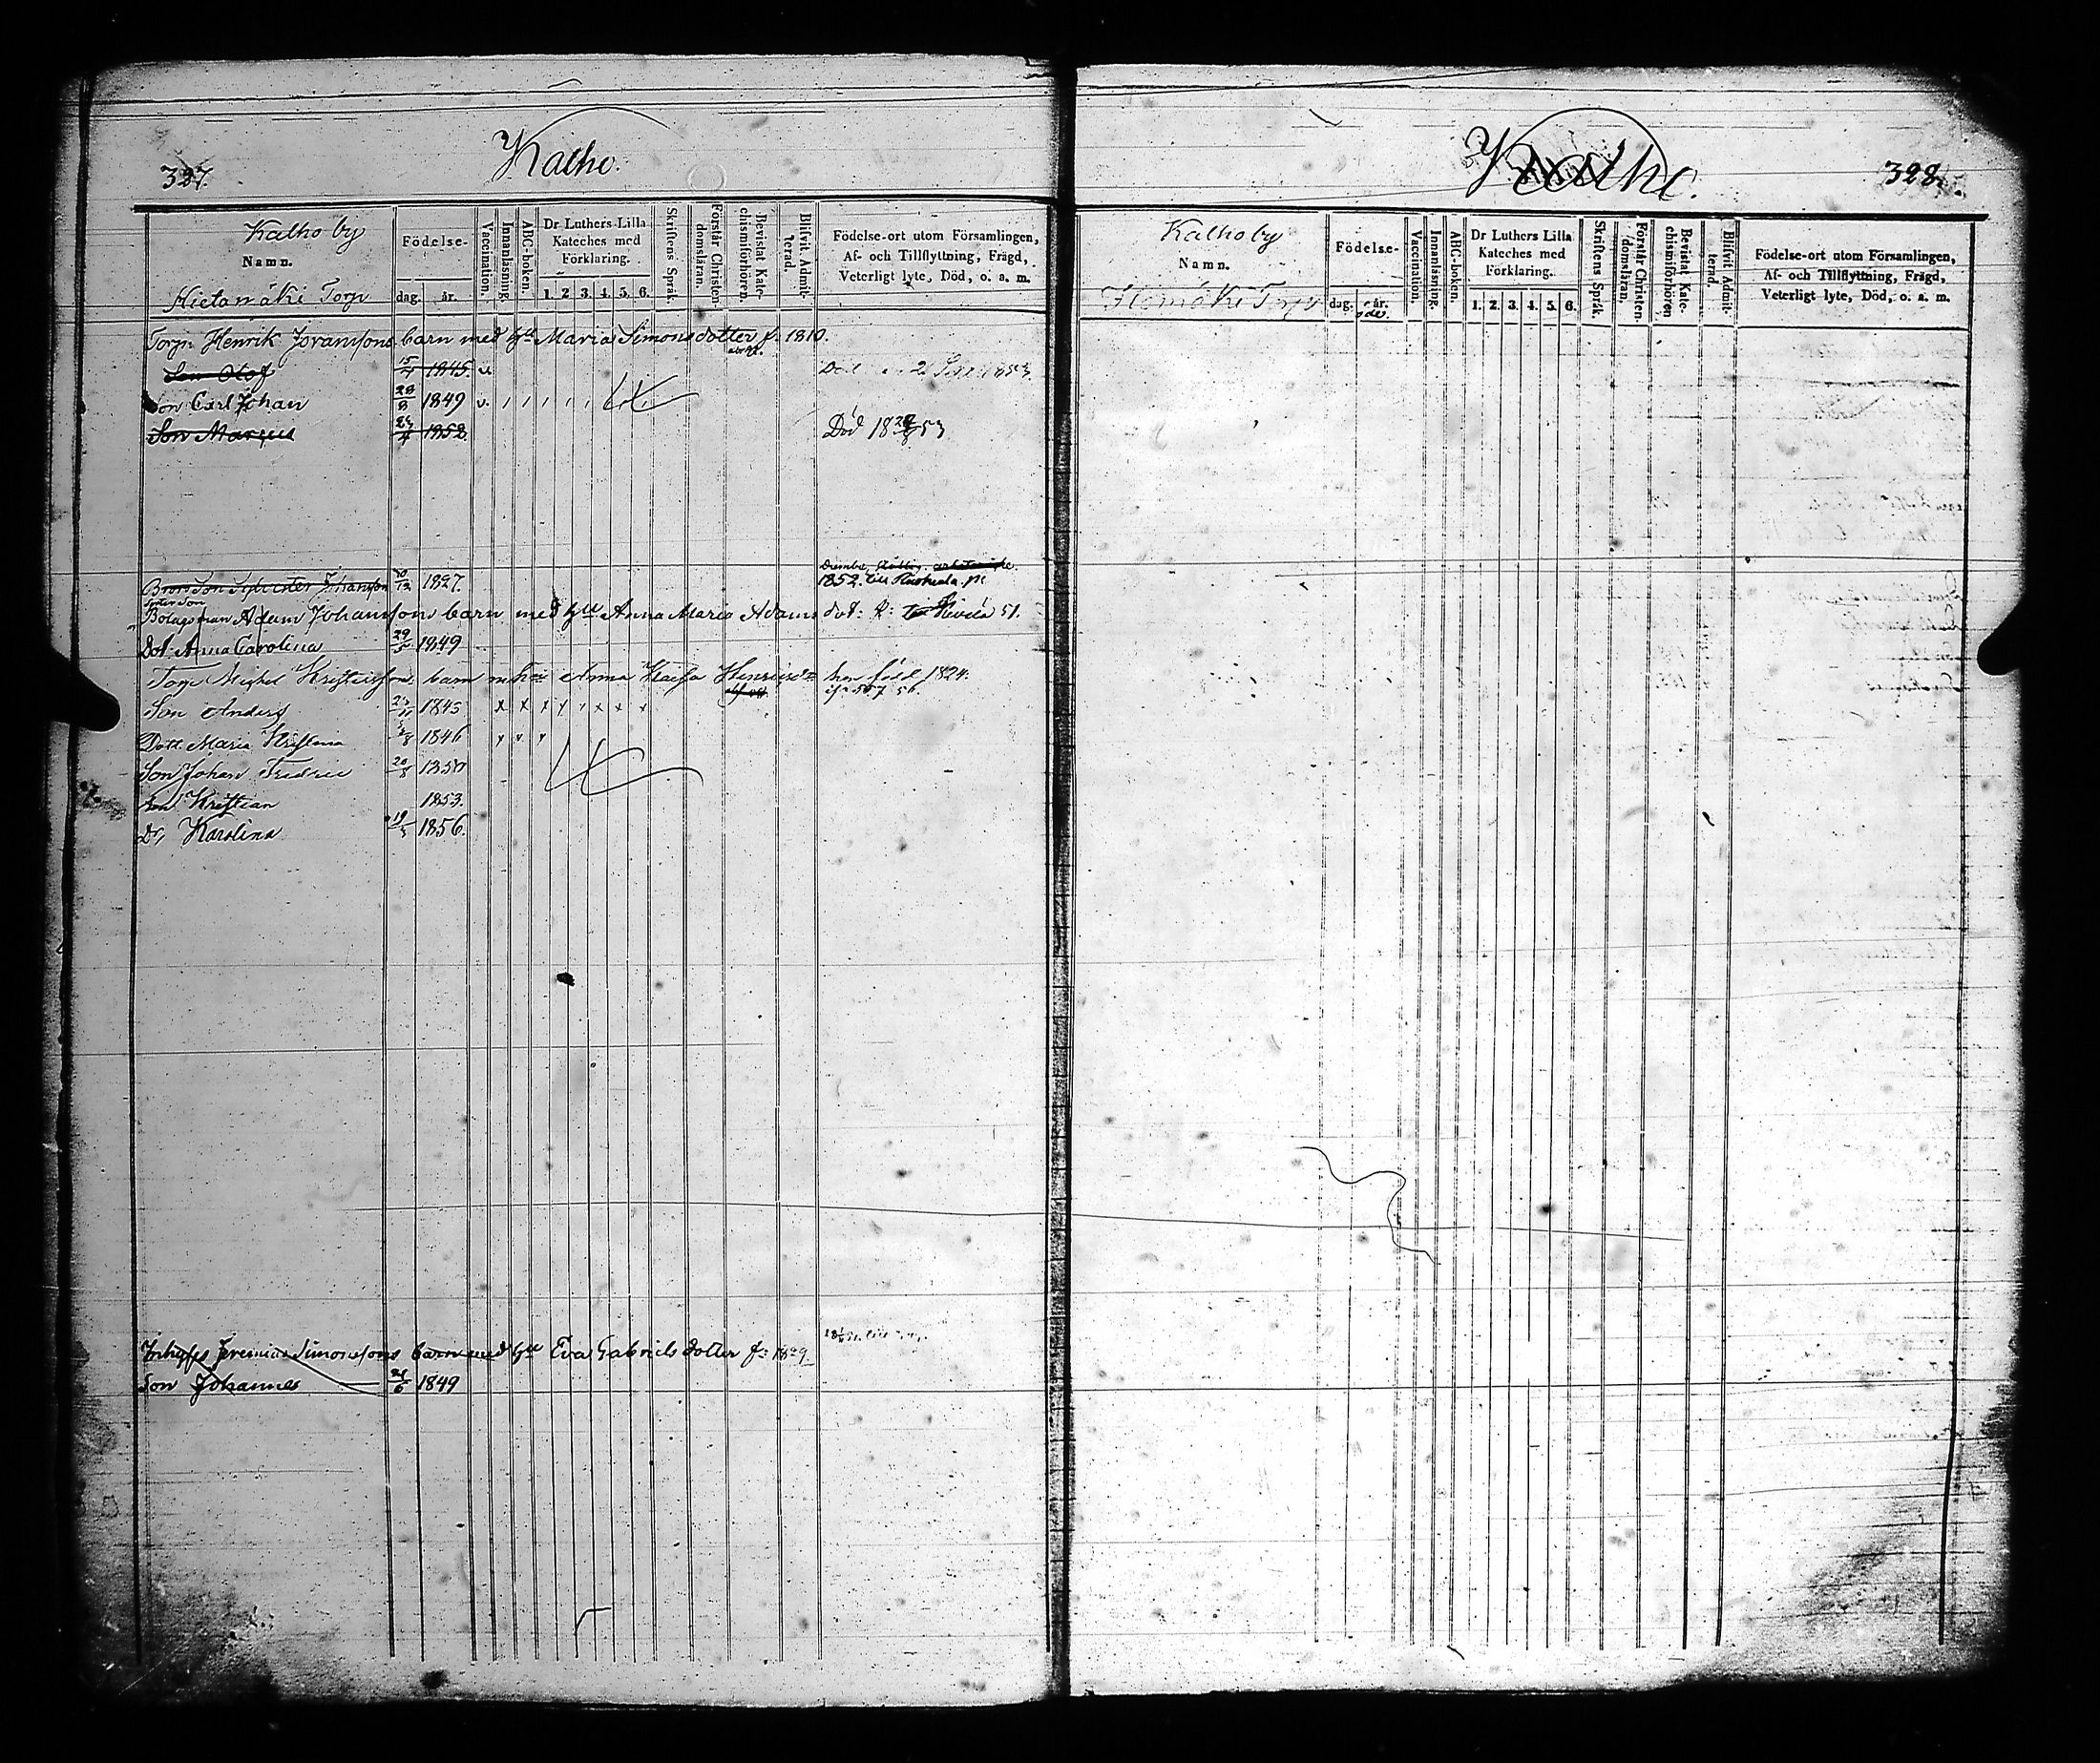 327.
Kalho.
Kalho by
Namn.
Hietamäki Torp
Födelse-
dag. år.
Vaccination.
Innanläsning.
ABC-boken.
Dr Luthers Lilla
Kateches med
Förklaring.
1. 2 3. 4. 5. 6.
Skriftens Språk.
Förstår Christen-
domsläran.
Bevistat Kate-
chismiförhören.
Blifvit Admit-
terad.
Födelse-ort utom Församlingen,
Af- och Tillflyttning, Frägd,
Veterligt lyte, Död, o. a. m.
Torp. Henrik Joransons barn med hu Maria Simonsdotter f. 1810.
Son Olof 15/4 1845. v.
Son Carl Johan 28/8 1849 v.
Son Marcus 1852. Död 18 53
Brors Son Sylvester Johansson 1827. 1852.
Adam Johansons barn med hu Anna Maria Adams dot: 51.
Dot. Anna Carolina 29/5 1849
Torp. Michel Kristersons barn m hu Anna Kaisa Henricsd hon född 1824.
Son Anders 1845
Dott. Maria Kristina 1846
Son Johan Fredric 20/8 1850
Son Kristian 1853.
D. Karolina 19/5 1856.
Inhyses Jeremias Simonsons barn med hu Eva Gabriels dotter f. 1829.
Son Johannes 21/6 1849
Kalho.
328.
Kalho by
Namn.
Torp
Födelse-
dag. år.
Vaccination.
Innanläsning.
ABC-boken.
Dr Luthers Lilla
Kateches med
Förklaring.
1. 2. 3. 4. 5. 6.
Skriftens Språk.
Förstår Christen-
domsläran.
Bevistat Kate-
chismiförhören
Blifvit Admit-
terad.
Födelse-ort utom Församlingen,
Af- och Tillflyttning, Frägd,
Veterligt lyte, Död, o. a. m.